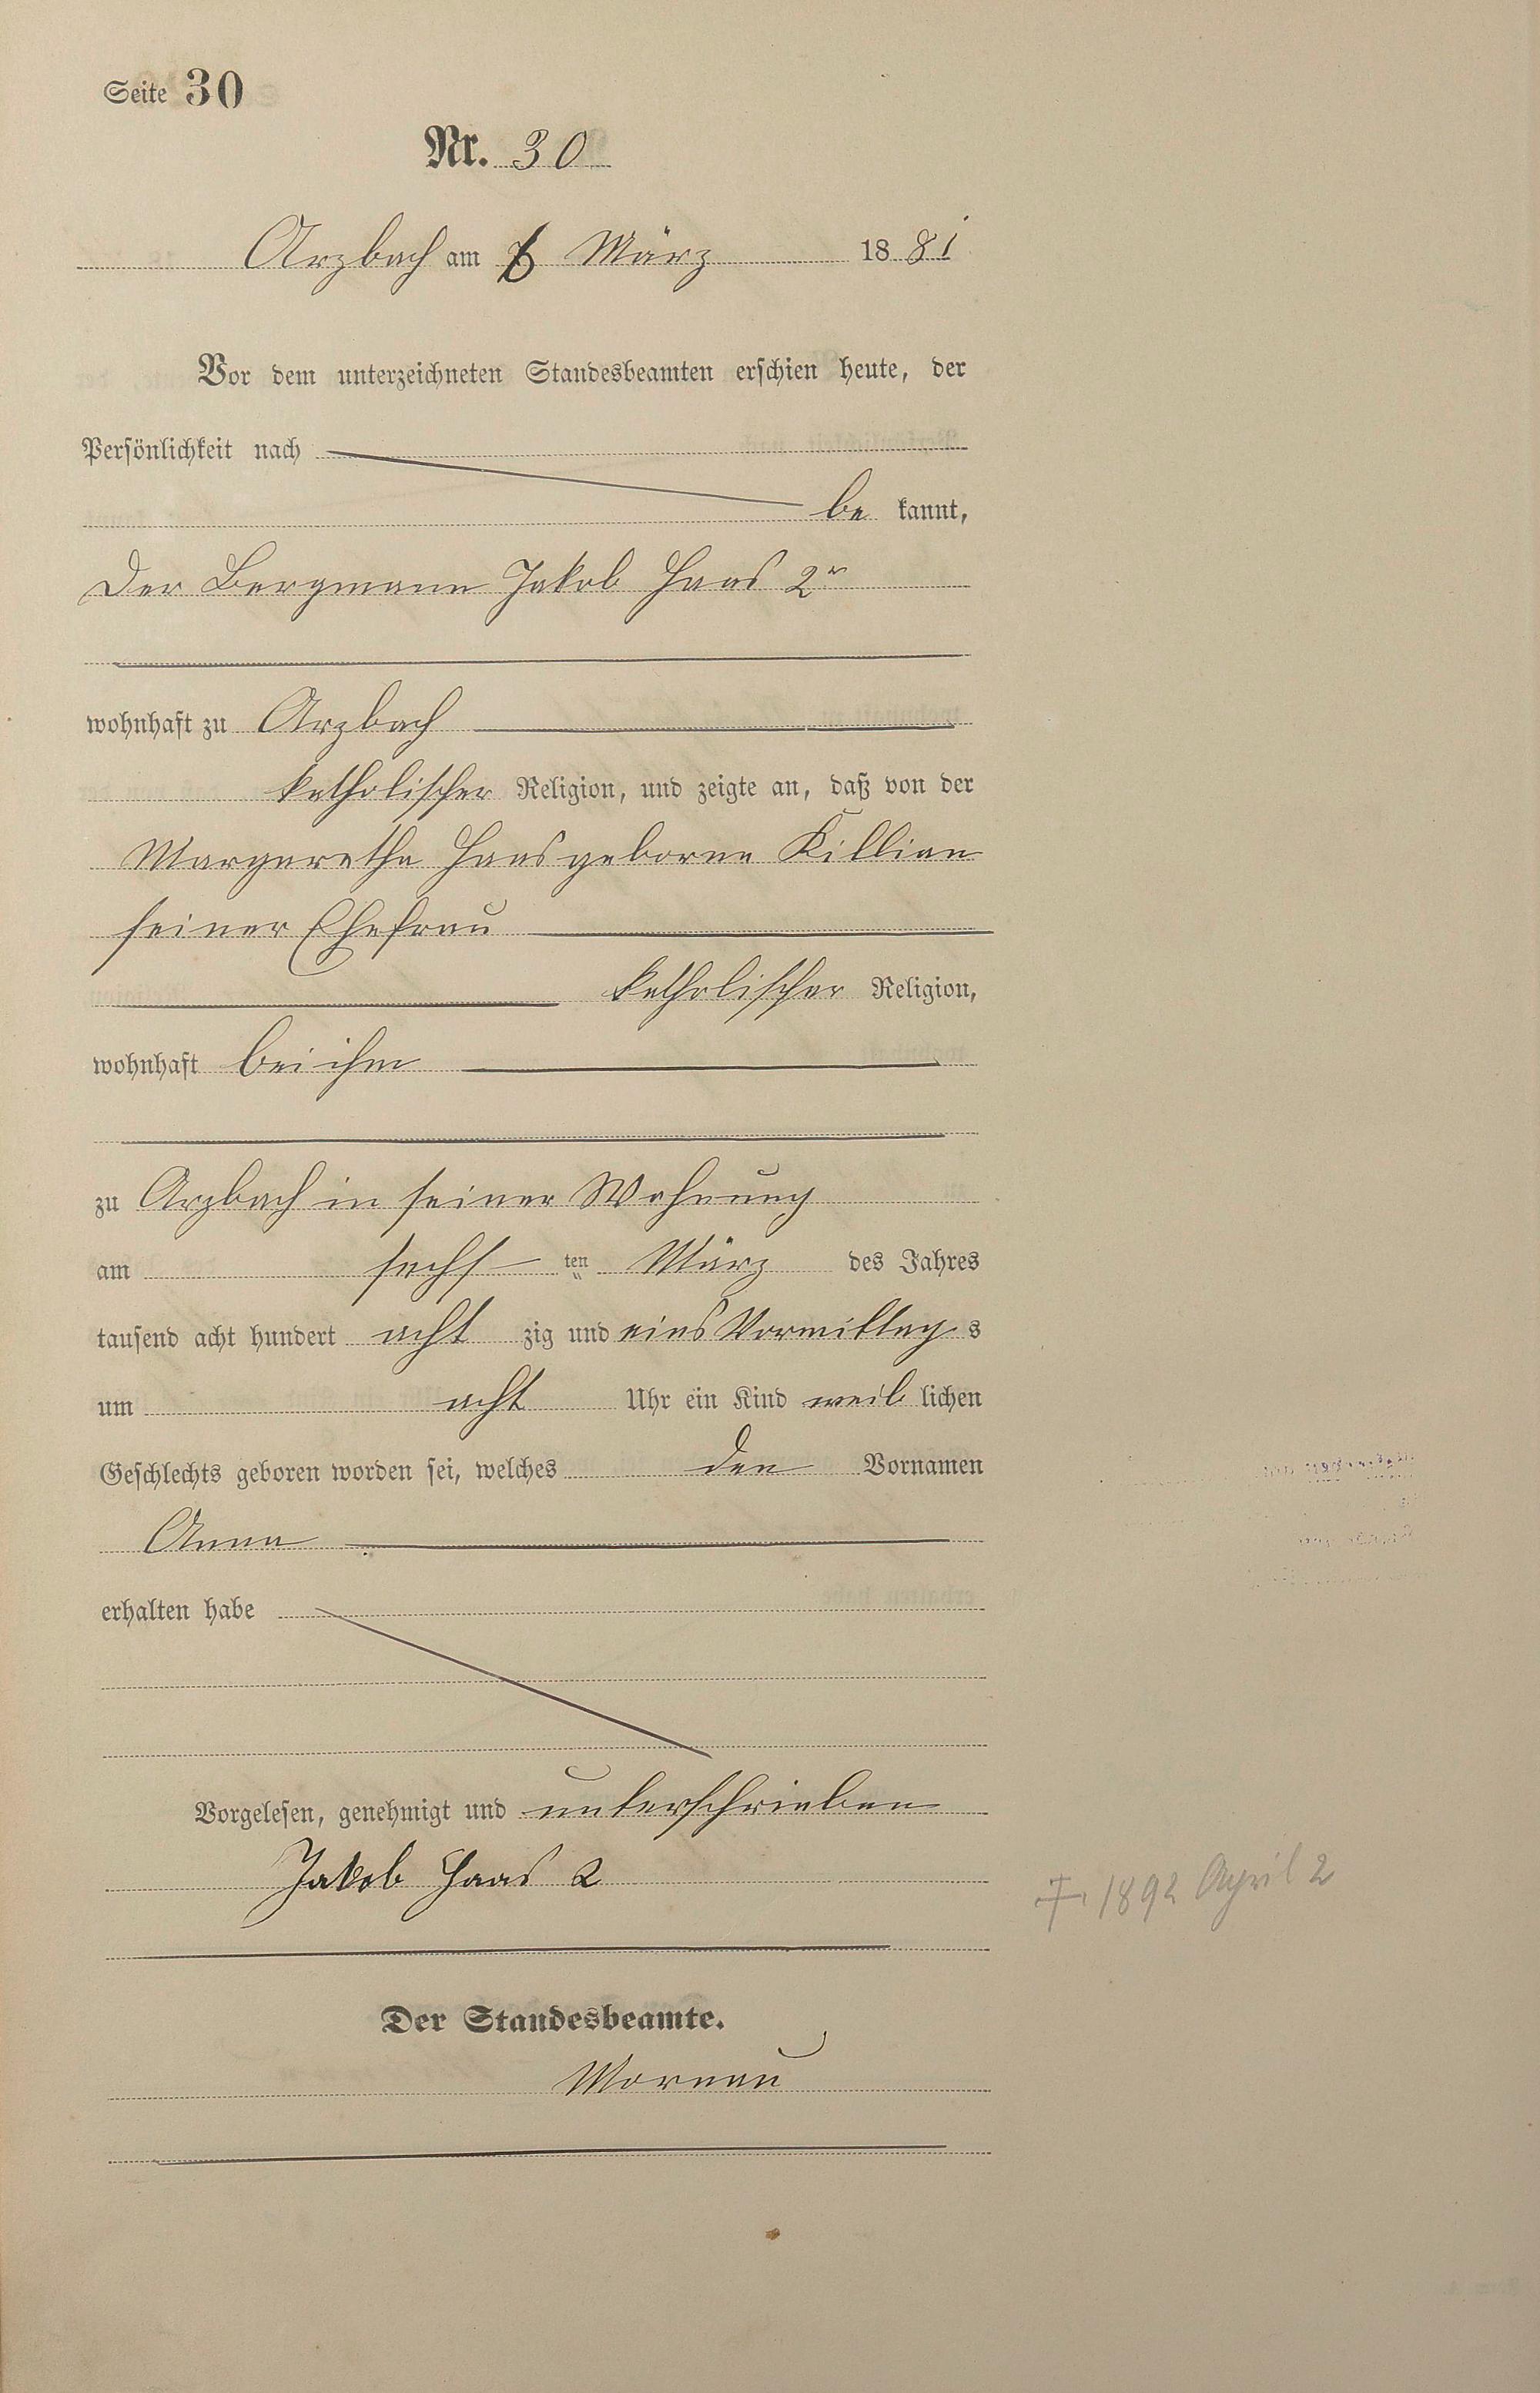 Seite 30
Nr. 30
Arzbach am 6 März 1881
Vor dem unterzeichneten Standesbeamten erschien heute, der
Persönlichkeit nach
be kannt,
Der Bergmann Jakob Haas 2r
wohnhaft zu Arzbach
katholischer Religion, und zeigte an, daß von der
Margaretha Haas geborne Killian
seiner Ehefrau
katholischer Religion,
wohnhaft bei ihm
zu Arzbach in seiner Wohnung
am sechs ten März des Jahres
tausend acht hundert acht zig und eins Vormittag s
um acht Uhr ein Kind weib lichen
Geschlechts geboren worden sei, welches den Vornamen
Anna
erhalten habe
Vorgelesen, genehmigt und unterschrieben
Jakob Haas 2
† 1892 April 2
Der Standesbeamte.